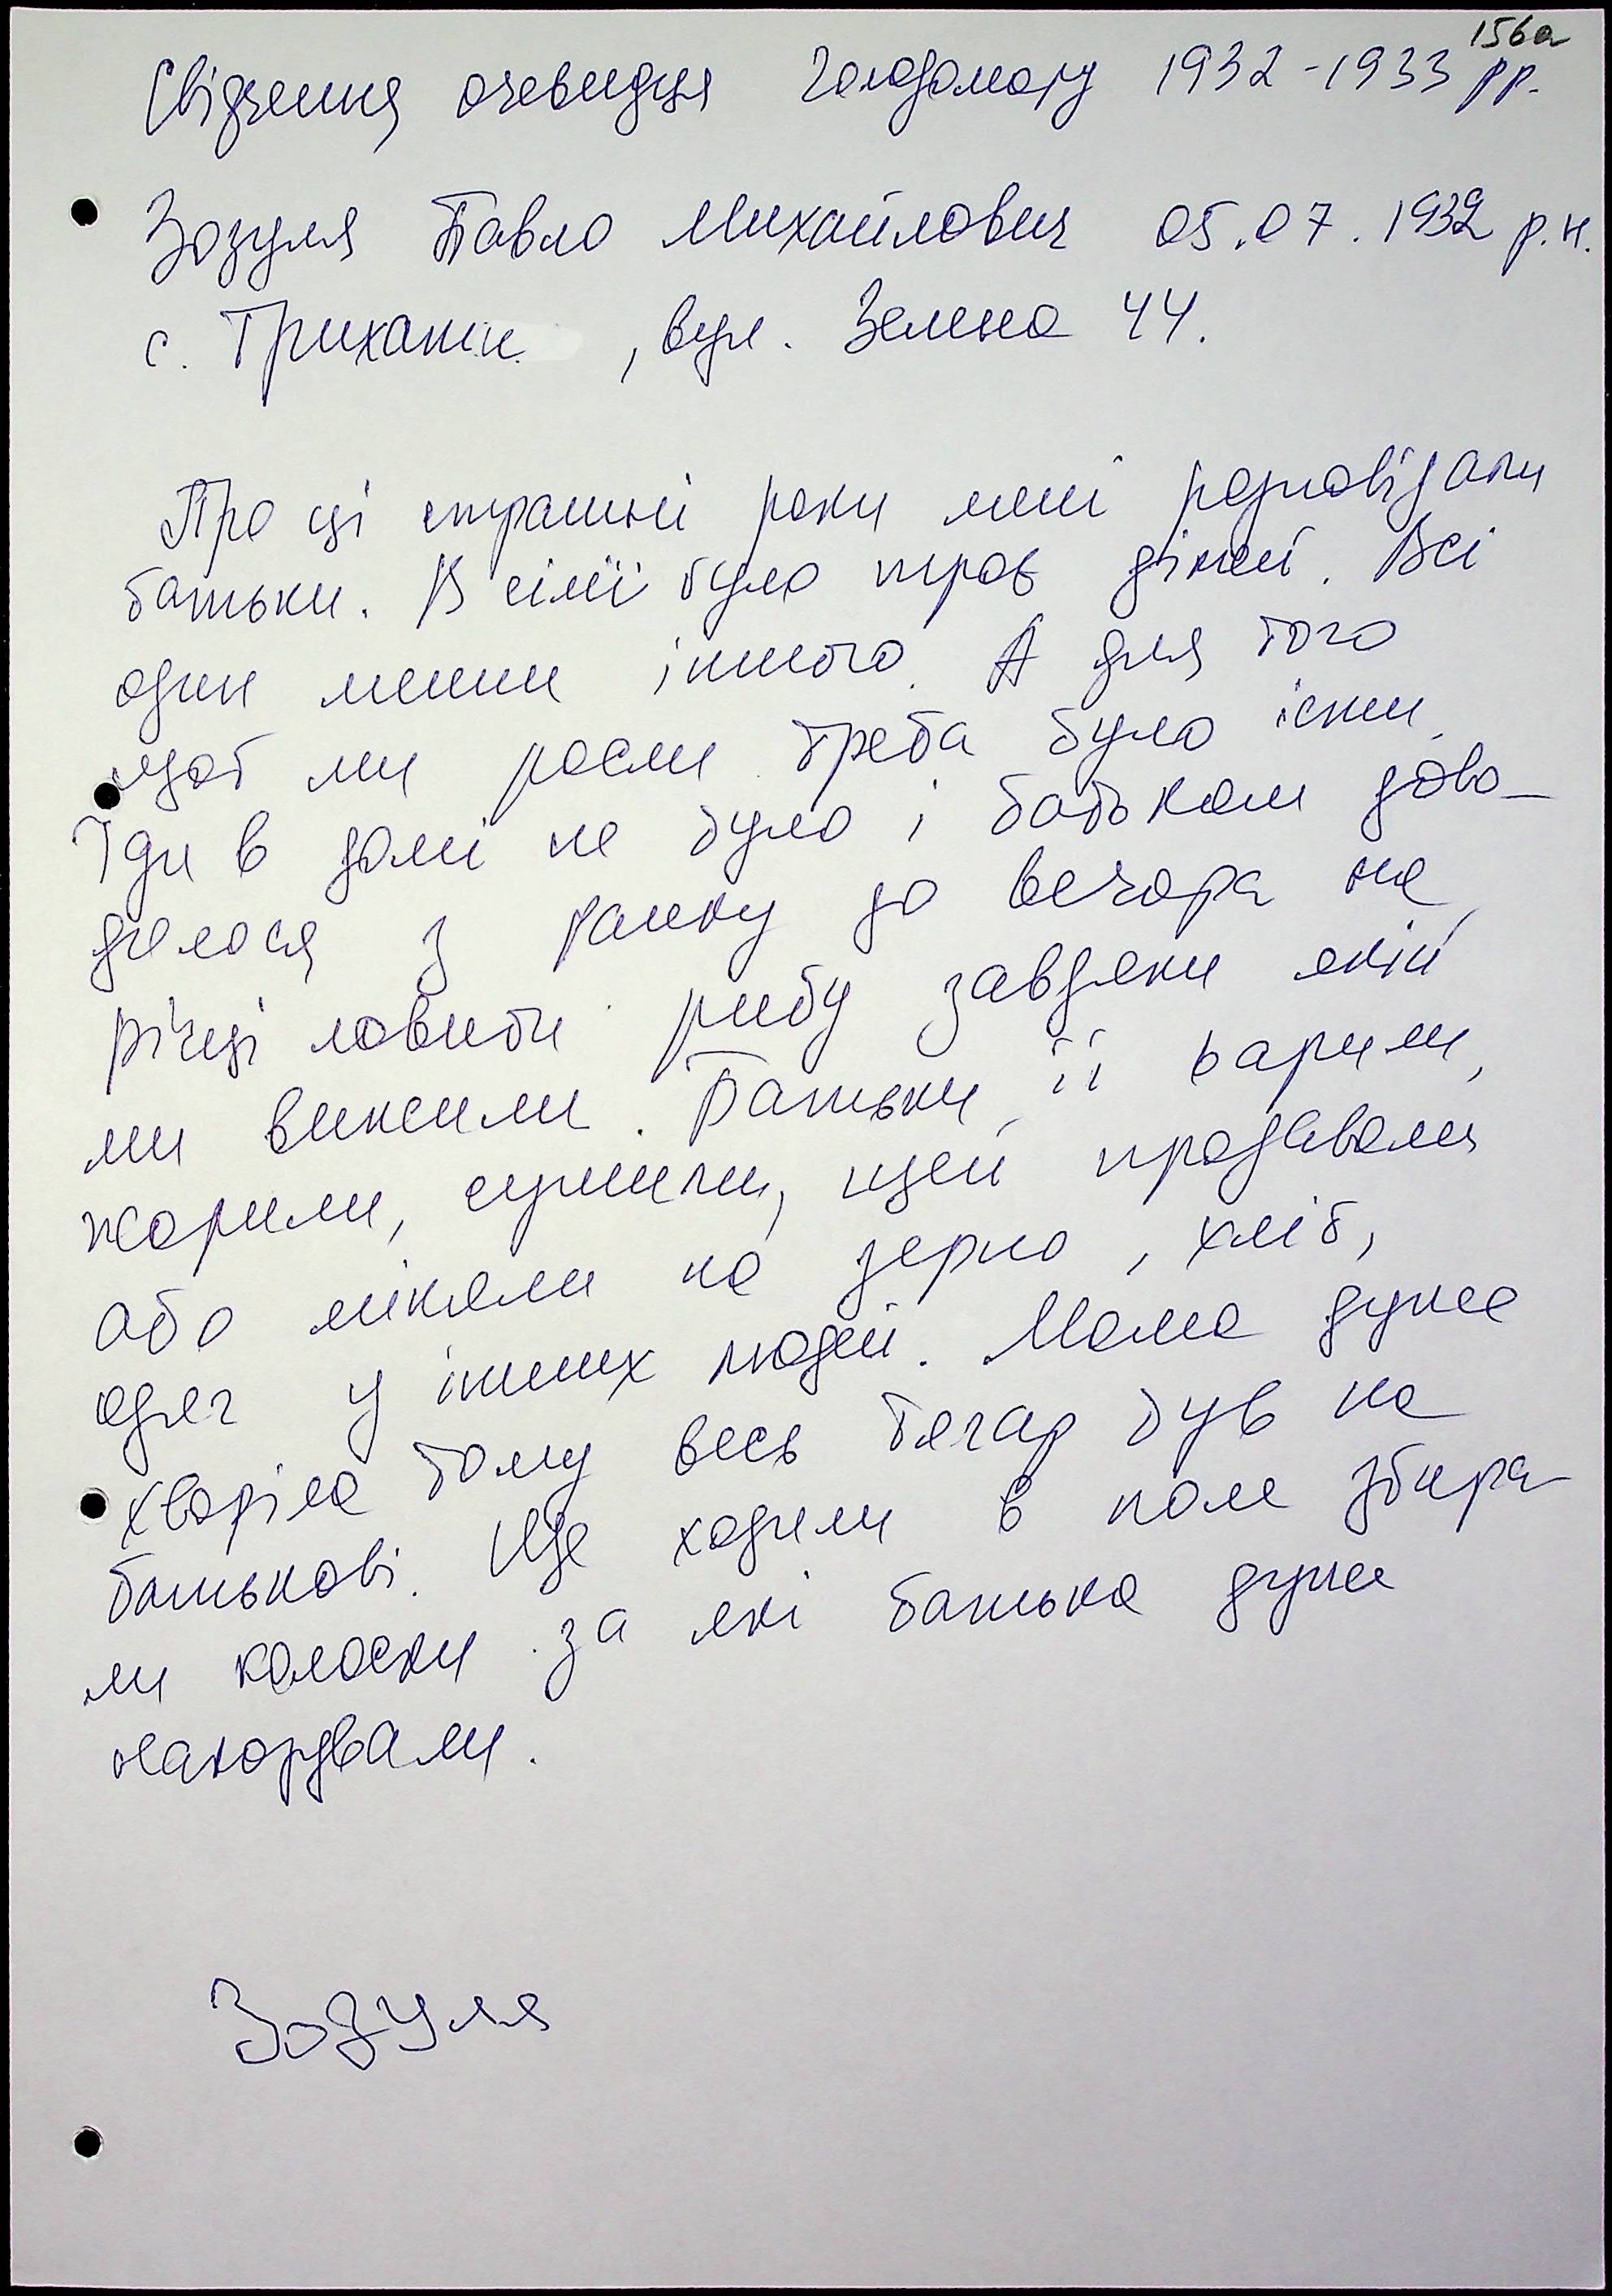 156а
Свідчення очевидця голодомору 1932-1933 рр.
Зозуля Павло Михайлович 05.07.1932 р.н.
с. Трихати , вул. Зелена 44.
Про ці страшні роки мені розповідали
батьки. В сімї було троє дітей. Всі
один менши іншого. А для того
щоб ми росли треба було їсти.
Їди в домі не було і батькам дово-
дилося з ранку до вечора на
річці ловити рибу завдяки якій
ми вижили. Батьки її варили,
жарили, сушили, щей продавали
або міняли на зерно, хліб,
одяг у інших людей. Мама дуже
хворіла тому весь тягар був на
батькові. Ще ходили в поле збира-
ли колоски за які батька дуже
покарували.
Зозуля